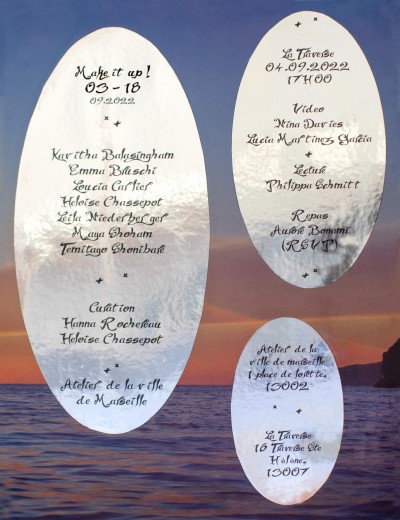 Make it up!
03-18
09.2022
Kavitha Balasingham
Emma Bruschi
Loucia Carlier
Heloise Chassepot
Leila Niederberger
Maya Shoham
Temitayo Shonibare
Curation
Hanna Rochereau
Heloise Chassepot
Atelier de la ville
de Marseille
La Traverse
04.09.2022
17H00
Video
Nina Davies
Lucia Martinez Garcia
Lecture
Philippa Schmitt
Repas
Aurore Bonami
(RSVP)
Atelier de la
ville de marseille
1 place de lorette.
13002
La Traverse
16 Traverse Ste
Hélène.
13007